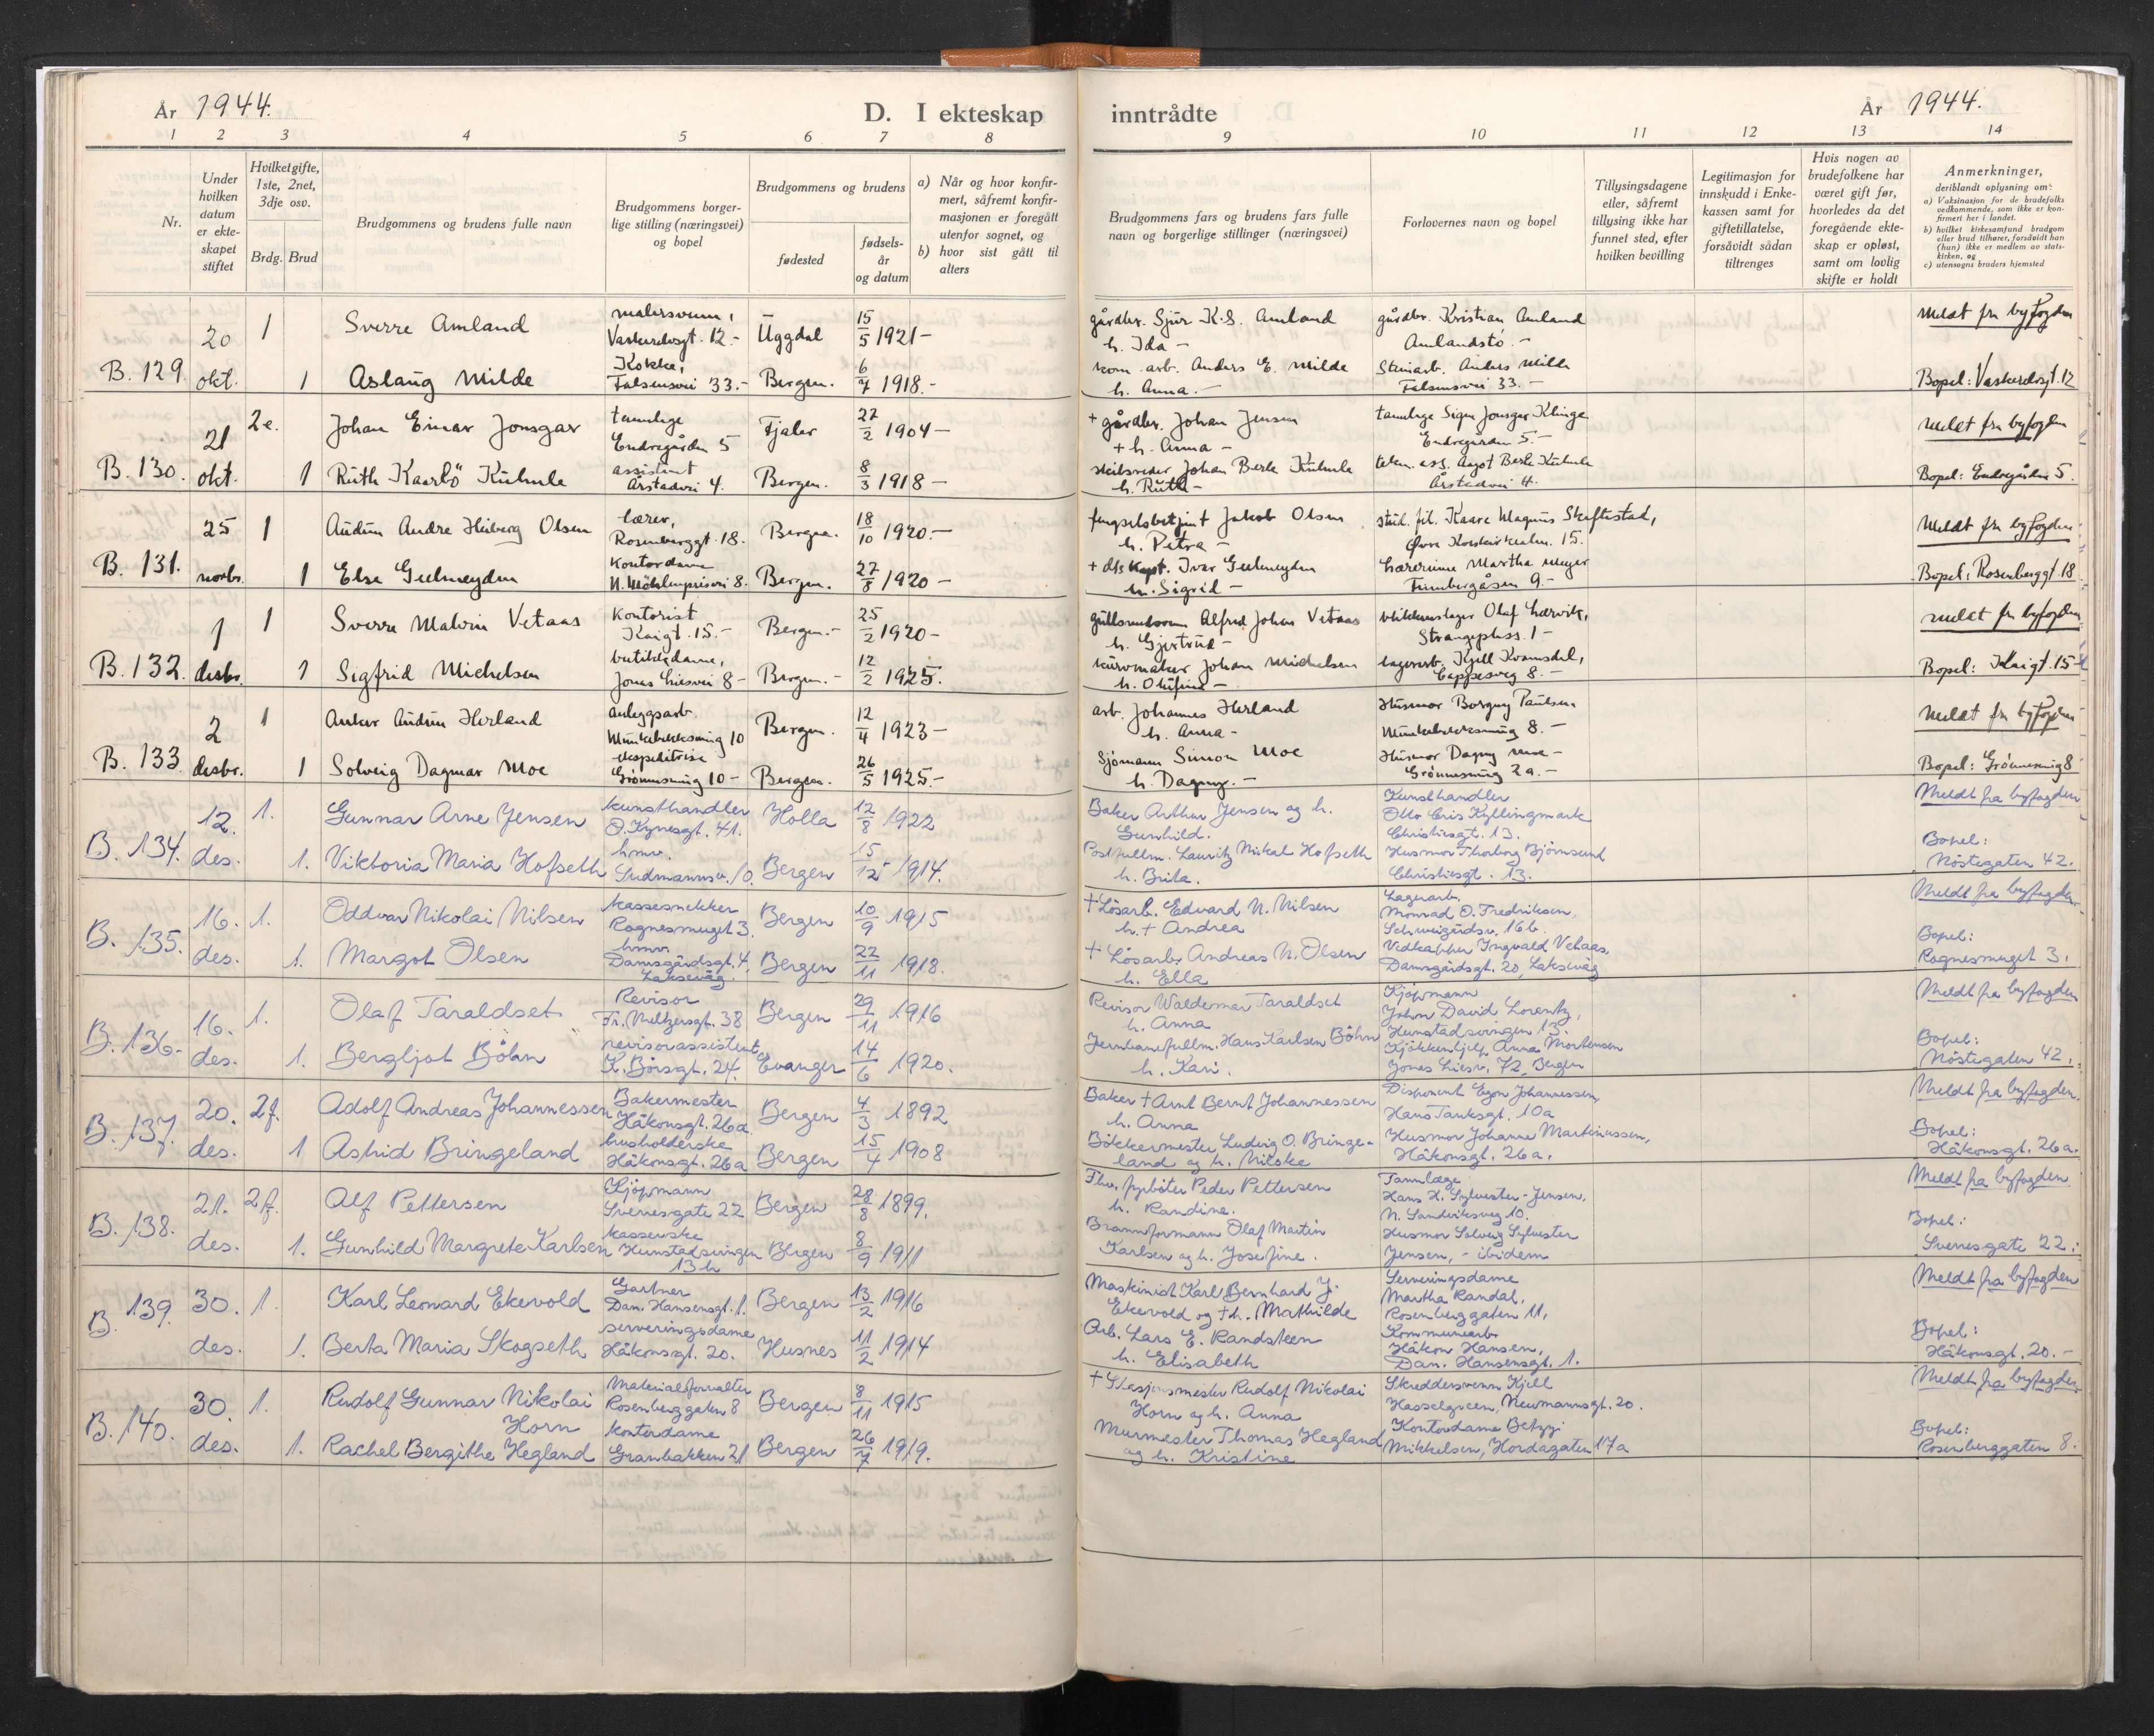 År 1944.
D. I ekteskap
inntrådte
År 1944.
1 2 3 4 5 6 7 8
9 10 11 12 13 14
Nr.
Under
hvilken
datum
er ekte-
skapet
stiftet
Hvilket gifte,
1ste, 2net,
3dje osv.
Brdg. Brud
Brudgommens og brudens fulle navn
Brudgommens borger-
lige stilling (næringsvei)
og bopel
Brudgommens og brudens
fødested
fødsels-
år
og datum
a) Når og hvor konfir-
mert, såfremt konfir-
masjonen er foregått
utenfor sognet, og
b) hvor sist gått til
alters
Brudgommens fars og brudens fars fulle
navn og borgerlige stillinger (næringsvei)
Forlovernes navn og bopel
Tillysingsdagene
eller, såfremt
tillysing ikke har
funnet sted, efter
hvilken bevilling
Legitimasjon for
innskudd i Enke-
kassen samt for
giftetillatelse,
forsåvidt sådan
tiltrenges
Hvis nogen av
brudefolkene har
været gift før,
hvorledes da det
foregående ekte-
skap er opløst,
samt om lovlig
skifte er holdt
Anmerkninger,
deriblandt oplysning om:
a) Vaksinasjon for de brudefolks
vedkommende, som ikke er kon-
firmert her i landet.
b) hvilket kirkesamfund brudgom
eller brud tilhører, forsåvidt han
(hun) ikke er medlem av stats-
kirken, og
c) utensogns bruders hjemsted
B. 129. 20 okt.
1 Sverre Amland
malersvenn,
Vaskerelvsgt. 12.-
Uggdal 15/5 1921-
gårdbr. Sjur K.S. Amland
h. Ida -
gårdbr. Kristian Amland
Amlandstø. -
Meldt fra byfogden
1 Aslaug Milde
Kokke,
Falsensvei 33.-
Bergen. 6/7 1918.-
kom. arb. Anders E. Milde
h. Anna. -
Steinarb. Anders Milde
Falsensvei 33. -
Bopel: Vaskerelvsgt. 12
B. 130. 21 okt.
2e. Johan Einar Jonsgar
tannlege
Endregården 5
Fjaler 27/2 1904-
+ gårdbr. Johan Jensen
+ h. Anna -
tannlege Signe Jonsgar Klinge
Endregården 5. -
Meldt fra byfogden
1 Ruth Kaarbö Kuhnle
assistent
Årstadvei 4.
Bergen. 8/3 1918-
skibsreder Johan Berle Kuhnle
h. Ruth -
tekn. ass. Aagot Berle Kuhnle
Årstadvei 4.
Bopel: Endregården 5.
B. 131. 25 novbr.
1 Audun Andre Heiberg Olsen
lærer,
Rosenberggt. 18.
Bergen. 18/10 1920.-
fengselsbetjent Jakob Olsen
h. Petra -
stud. fil. Kaare Magnus Skeftestad,
Øvre Korskirkealm. 15.
Meldt fra byfogden
1 Else Geelmeyden
Kontordame
N. Möhlenprisvei 8.
Bergen. 27/8 1920-
+ dsKapt. Ivar Geelmeyden
h. Sigrid -
Lærerinne Martha Meyer
Tunnbergåsen 9. -
Bopel: Rosenberggt. 18
B. 132. 1 desbr.
1 Sverre Malvin Vetaas
Kontorist
Kaigt. 15. -
Bergen.- 25/2 1920-
gullsmedsvenn Alfred Johan Vetaas
h. Gjertrud -
blikkenslager Olaf Larvik,
Strangeplass. 1-
Meldt fra byfogden
1 Sigfrid Michelsen
butikkdame,
Jonas Liesvei 8-
Bergen. - 12/2 1925.
kurvmaker Johan Michelsen
h. Olufine -
lagerarb. Kjell Kvamsdal,
Cappesveg 8. -
Bopel: Kaigt. 15-
B. 133 2 desbr.
1 Anker Audun Herland
anleggsarb.
Munkebekksmug 10
Bergen. 12/4 1923-
arb. Johannes Herland
h. Anna -
Husmor Borgny Paulsen
Munkebekksmug 8. -
Meldt fra byfogden
1 Solveig Dagmar Moe
ekspeditrise
Grönnesmug 10-
Bergen. 26/5 1925.-
Sjömann Simon Moe
h. Dagny. -
Husmor Dagny Moe -
Grönnesmug 2a. -
Bopel: Grönnesmug 8
B. 134. 12. des.
1. Gunnar Arne Jensen
kunsthandler
D. Kyresgt. 41.
Holla 12/8 1922
Baker Arthur Jensen og h.
Gunhild.
Kunsthandler
Otto Cris Kyllingmark
Christiesgt. 13.
Meldt fra byfogden
1. Viktoria Maria Hofseth
hmv.
Sudmannsv. 10
Bergen 15/12 1914.
Postfullm. Lauritz Mikal Hofseth
h. Brita.
Husmor Thorborg Björnsund
Christiesgt. 13.
Bopel:
Nöstegaten 42.
B. 135. 16. des.
1. Oddvar Nikolai Nilsen
kassesnekker
Rognesmuget 3.
Bergen 10/9 1915
+ Lösarb. Edvard N. Nilsen
h. + Andrea
Lagerarb.
Monrad O. Fredriksen,
Schweigårdsv. 16b.
Meldt fra byfogden
1. Margot Olsen
hmv.
Damsgårdsgt. 4,
Laksevåg.
Bergen 22/11 1918.
+ Lösarb. Andreas N. Olsen
h. Ella
Vedkapper Ingvald Vetaas,
Damsgårdsgt. 20, Laksevåg
Bopel:
Rognesmuget 3.
B. 136. 16. des.
1. Olaf Taraldset
Revisor
Fr. Meltzersgt. 38
Bergen 29/11 1916
Revisor Waldemar Taraldset
h. Anna
Kjöpmann
John David Lorentz,
Hunstadsvingen 13.
Meldt fra byfogden
1. Bergljot Böhn
revisorassistent
K. Börsgt. 24.
Evanger 14/6 1920.
Jernbanefullm. Hans Karlsen Böhn
h. Kari.
Kjökkenhjelp Anna Mortensen
Jonas Liesv. 72, Bergen
Bopel:
Nöstegaten 42.
B. 137. 20. des.
2f. Adolf Andreas Johannessen
Bakermester
Håkonsgt. 26a.
Bergen 4/3 1892
Baker + Arnt Bernt Johannessen
h. Anna
Disponent Egon Johannessen,
Hans Tanksgt. 10a
Meldt fra byfogden.
1 Astrid Bringeland
husholderske
Håkonsgt. 26a
Bergen 15/4 1908
Bökkermester Ludvig O. Bringe-
land og h. Milske
Husmor Johanne Martinussen,
Håkonsgt. 26a.
Bopel:
Håkonsgt. 26a.
B. 138. 21. des.
2f. Alf Pettersen
Kjöpmann
Sverresgate 22
Bergen 28/8 1899.
Fhv. fyrböter Peder Pettersen
h. Randine.
Tannlæge
Hans H. Sylvester-Jensen,
N. Sandviksveg 10.
Meldt fra byfogden
1. Gunhild Margrete Karlsen
kasserske
Hunstadsvingen
13 b
Bergen 8/9 1911
Brannformann Olaf Martin
Karlsen og h. Josefine.
Husmor Solveig Sylvester
Jensen, - ibidem
Bopel:
Sverresgate 22.
B. 139. 30. des.
1. Karl Leonard Ekevold
Gartner
Dan. Hansensgt. 1.
Bergen 13/2 1916
Maskinist Karl Bernhard J.
Ekevold og + h. Mathilde
Serveringsdame
Martha Randal,
Rosenberggaten 11,
Meldt fra byfogden
1. Berta Maria Skogseth
serveringsdame
Håkonsgt. 20.
Husnes 11/2 1914
Arb. Lars E. Randsteen
h. Elisabeth
Kommunearb.
Håkon Hansen,
Dan. Hansensgt. 1.
Bopel:
Håkonsgt. 20. -
B. 140. 30. des.
1. Rudolf Gunnar Nikolai
Horn
Materialforvalter
Rosenberggaten 8
Bergen 8/11 1915
+ Stasjonsmester Rudolf Nikolai
Horn og h. Anna
Skreddersvenn Kjell
Hasselgreen, Neumannsgt. 20.
Meldt fra byfogden
1. Rachel Bergithe Hegland
kontordame
Granbakken 21
Bergen 26/7 1919.
Murmester Thomas Hegland
og h. Kristine
Kontordame Betzy
Mikkelsen, Hordagaten 17a
Bopel:
Rosenberggaten 8.